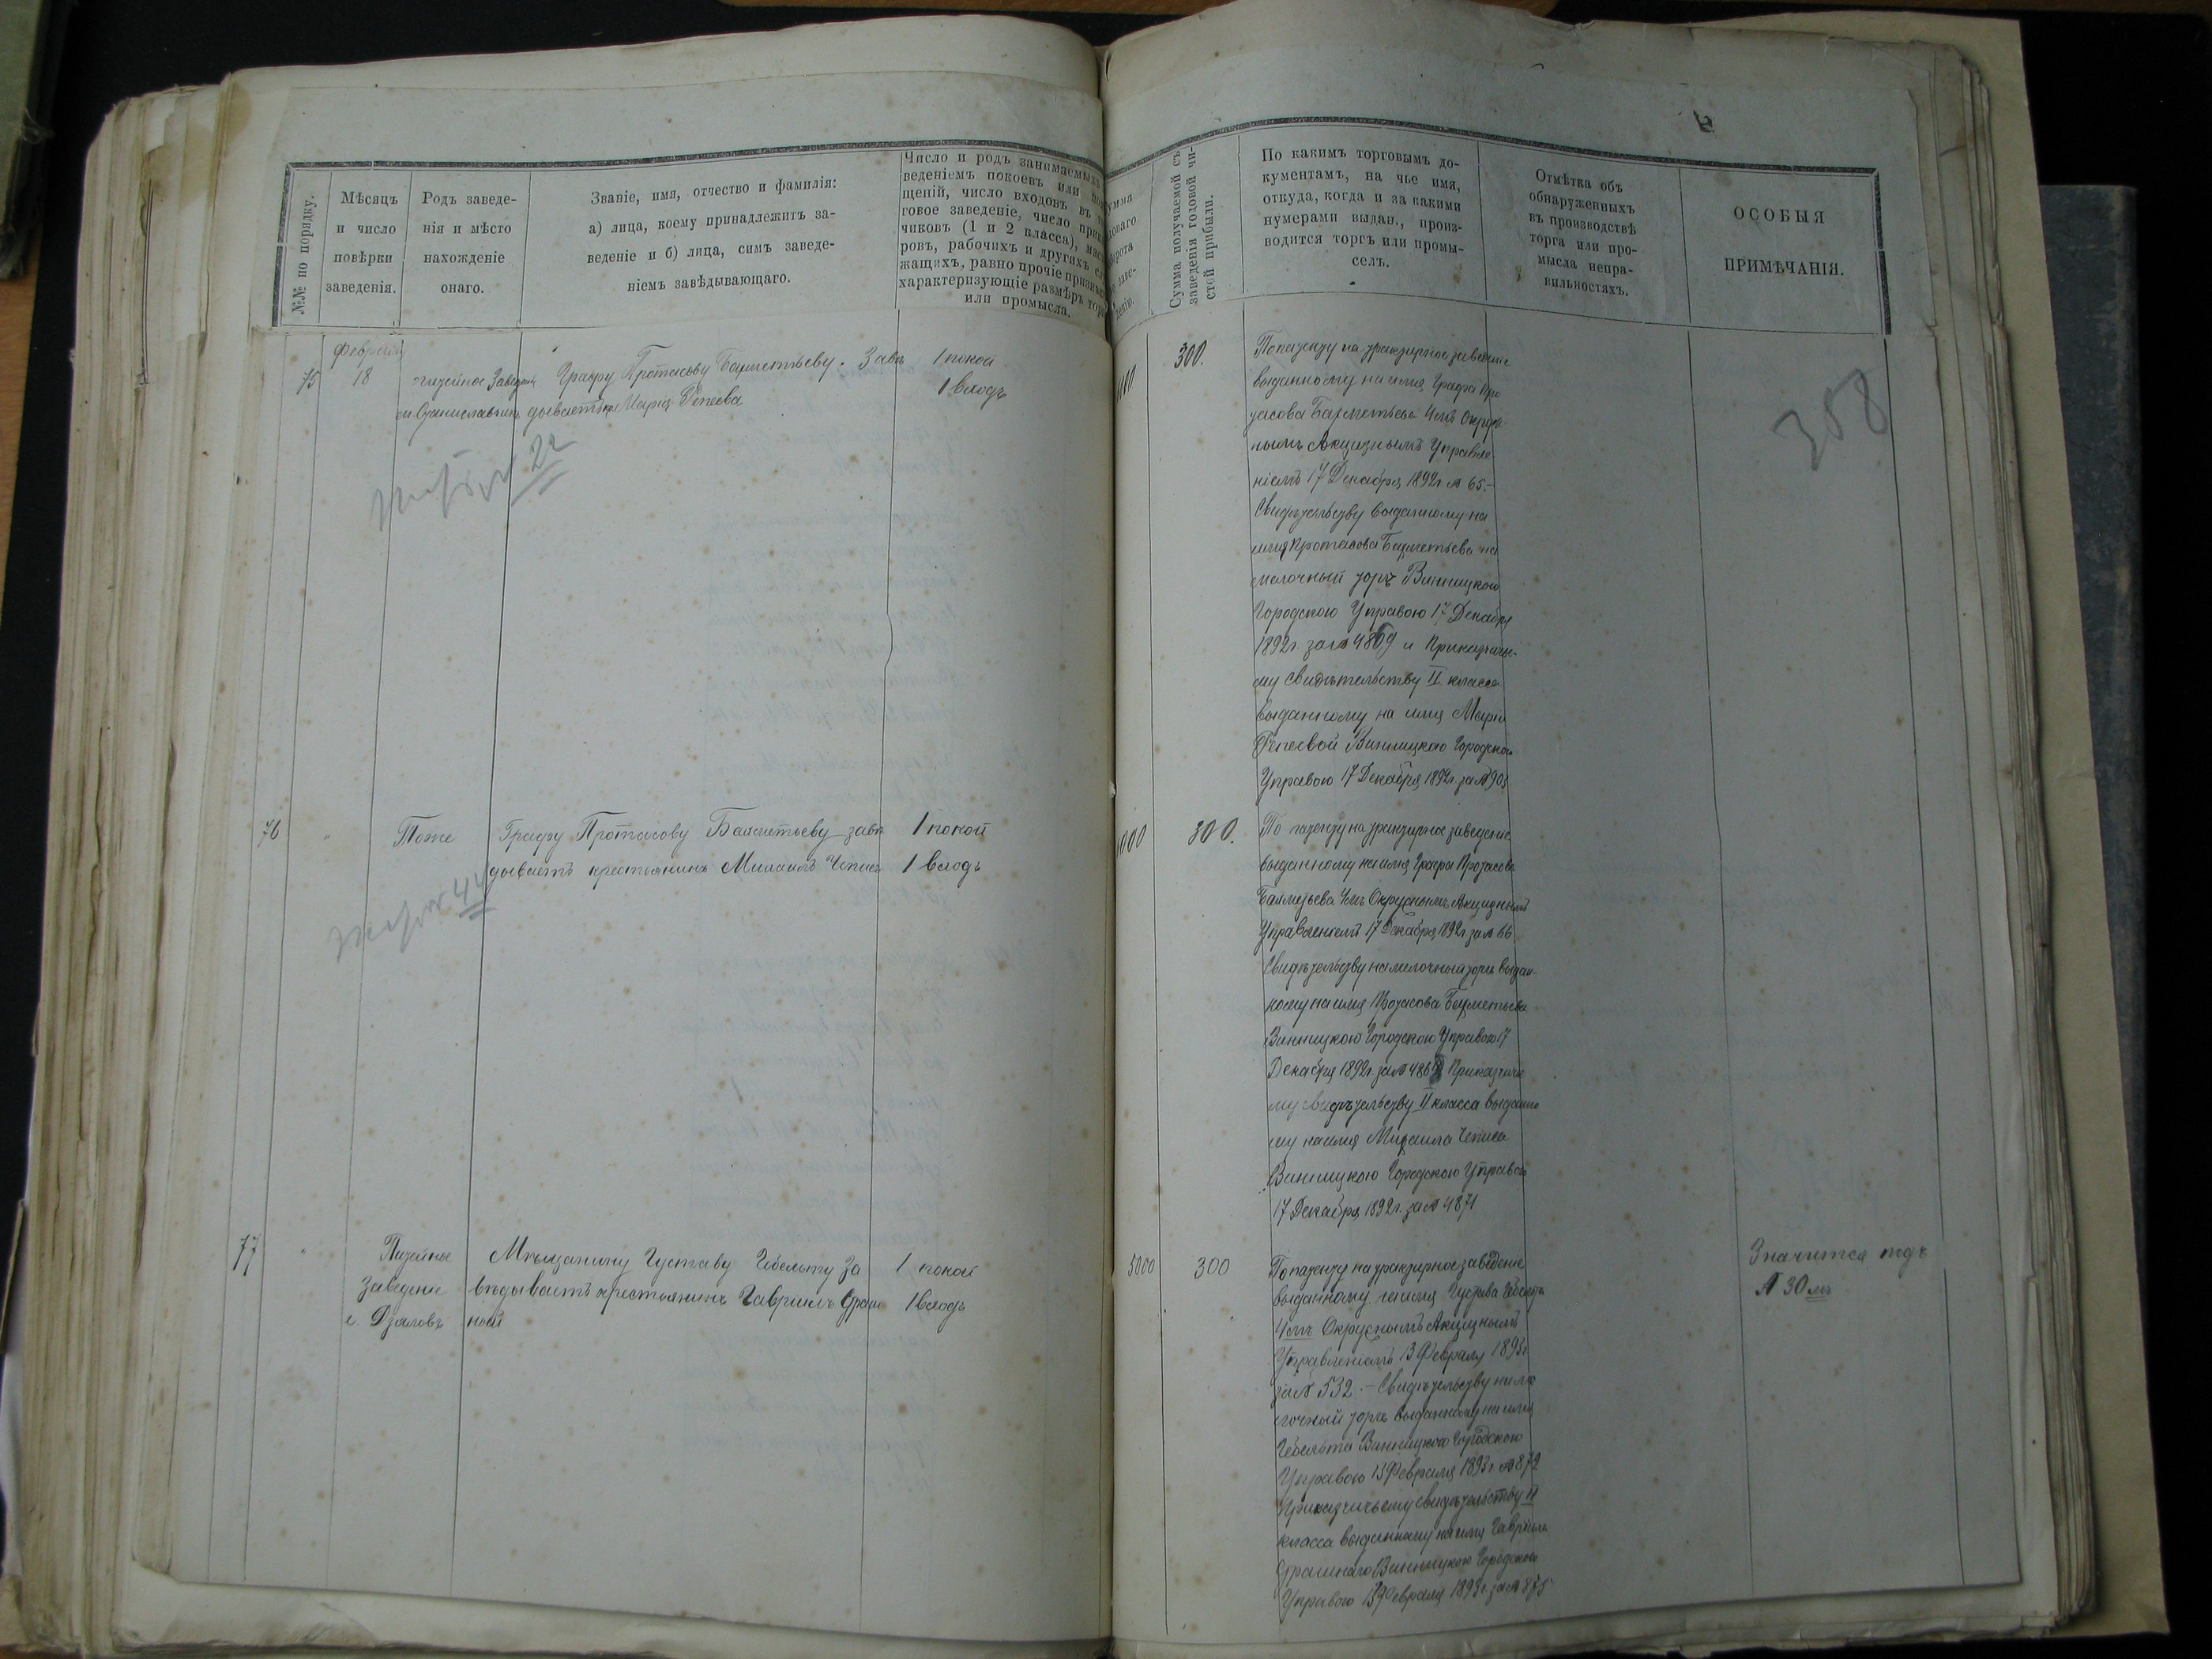 №№ по порядку.
Мѣсяцъ
и число
повѣрки
заведенія.
Родъ заведе-
нія и мѣсто
нахожденіе
онаго.
Званіе, имя, отчество и фамилія:
а) лица, коему принадлежитъ за-
веденіе и б) лица, симъ заведе-
ніемъ завѣдывающаго.
Число и родъ занимаемыхъ
веденіемъ покоевъ или
щеній, число входовъ въ
говое заведеніе, число
чиковъ (1 и 2 класса),
ровъ, рабочихъ и другихъ
жащихъ, равно прочіе
характеризующіе размѣръ
или промысла.
Сумма получаемой съ
заведенія годовой чи-
стой прибыли.
По какимъ торговымъ до-
кументамъ, на чье имя,
откуда, когда и за какими
нумерами выдан., произ-
водится торгъ или промы-
селъ.
Отмѣтка объ
обнаруженныхъ
въ производствѣ
торга или про-
мысла непра-
вильностяхъ.
ОСОБЫЯ
ПРИМѢЧАНІЯ.
358
75
Февраля
18
питейное Заведен
Графу Протасову Бахметьеву. Завѣ
дываетъ Марія Репеева
1 покой
1 входъ
22
300.
По патенту на трактирное заведеніе
выданному на имя Графа Про
тасова Бахметьева 4мъ Окруж
нымъ Акцизнымъ Управле
ніемъ 17 Декабря 1892г № 65.-
Свидѣтельству выданному на
имя Протасова Бахметьева на
мелочный торгъ Винницкою
Городскою Управою 17 Декабря
1892г. за № 4869 и Приказчичь-
му свидѣтельству II класса
выданному на имя Маріи
Репеевой Винницкою Городскою
Управою 17 Декабря 1892г за №
76
"
Тоже
Графу Протасову Бахметьеву завѣ
дываетъ крестьянинъ Михаилъ
1 покой
1 входъ
44
300.
По патенту на трактирное заведеніе
выданному на имя Графа Протасова
Бахметьева 4мъ Окружнымъ Акцизнымъ
Управленіемъ 17 Декабря 1892г за № 66
Свидѣтельству на мелочный торгъ выдан-
ному на имя Протасова Бахметьева
Винницкою Городскою Управою 17
Декабря 1892г. за №
Приказчичь
му свидѣтельству II класса выданно
му на имя Михаила
Винницкою Городскою Управою
17 Декабря 1892г. за № 4871
77
"
Питейное
Заведеніе
с. Дзяловъ
Мѣщанину Густаву Гебельту За
вѣдываетъ крестьянинъ Гавріилъ
ной
1 покой
1 входъ
5000
300
По патенту на трактирное заведеніе
выданному на имя Густава Гебельта
4мъ Окружнымъ Акцизнымъ
Управленіемъ 13 Февраля 1893г
за № 532.- Свидѣтельству на ме
лочный торгъ выданному на имя
Гебельта Винницкою Городскою
Управою 13 Февраля 1893г № 872
Приказчичьему свидѣтельству II
класса выданному на имя Гавріила
Винницкою Городскою
Управою 13 Февраля 1893г. за № 875
Значится подъ
№ 30мъ